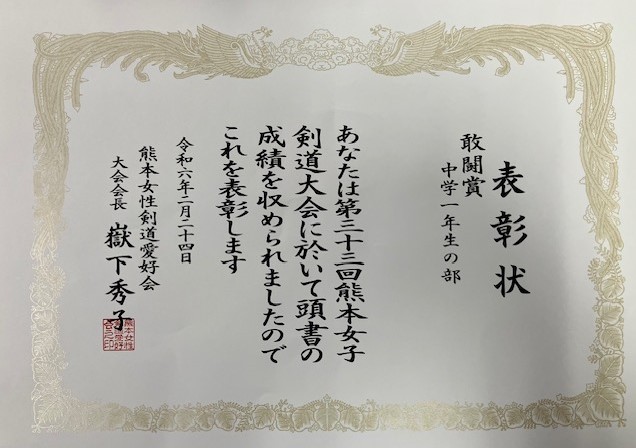 表彰状
敢闘賞
中学一年生の部
あなたは第三十三回熊本女子
剣道大会に於いて頭書の
成績を収められましたので
これを表彰します
令和六年二月二十四日
熊本女性剣道愛好会
大会会長 嶽下秀子